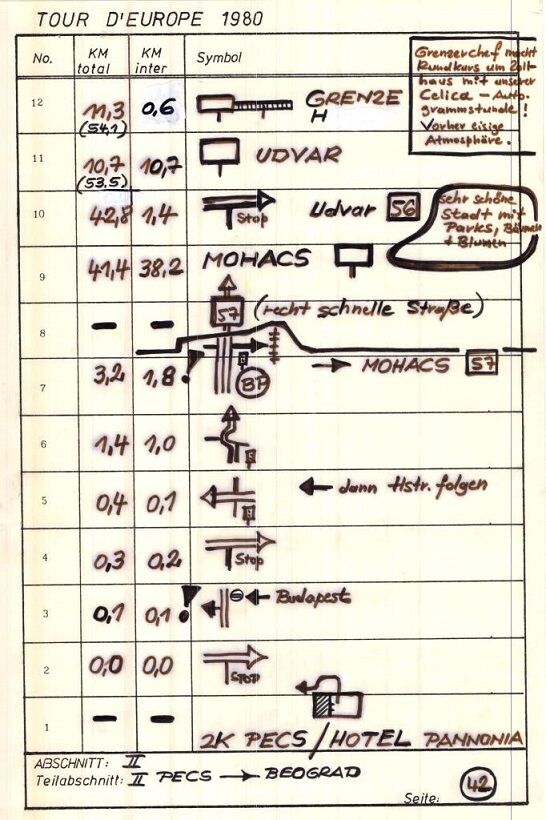 TOUR D'EUROPE 1980
No. KM total KM inter Symbol
Grenzerchef macht
Rundkurs um Zoll-
haus mit unserer
Celica – Auto-
grammstunde!
Vorher eisige
Atmosphäre.
12 11,3 0,6 GRENZE
(54,1) H
11 10,7 10,7 UDVAR
(53,5)
10 42,8 1,4 Stop Udvar 56
sehr schöne
Stadt mit
Parks, Bäumen
+ Blumen
9 41,4 38,2 MOHACS
8 – – 57 (recht schnelle Straße)
7 3,2 1,8 ! BP → MOHACS 57
6 1,4 1,0
5 0,4 0,1 ← dann Hstr. folgen
4 0,3 0,2 Stop
3 0,1 0,1 ! ← Budapest
2 0,0 0,0 STOP
1 – – ZK PECS / HOTEL PANNONIA
ABSCHNITT: II
Teilabschnitt: II PECS → BEOGRAD
Seite: 42